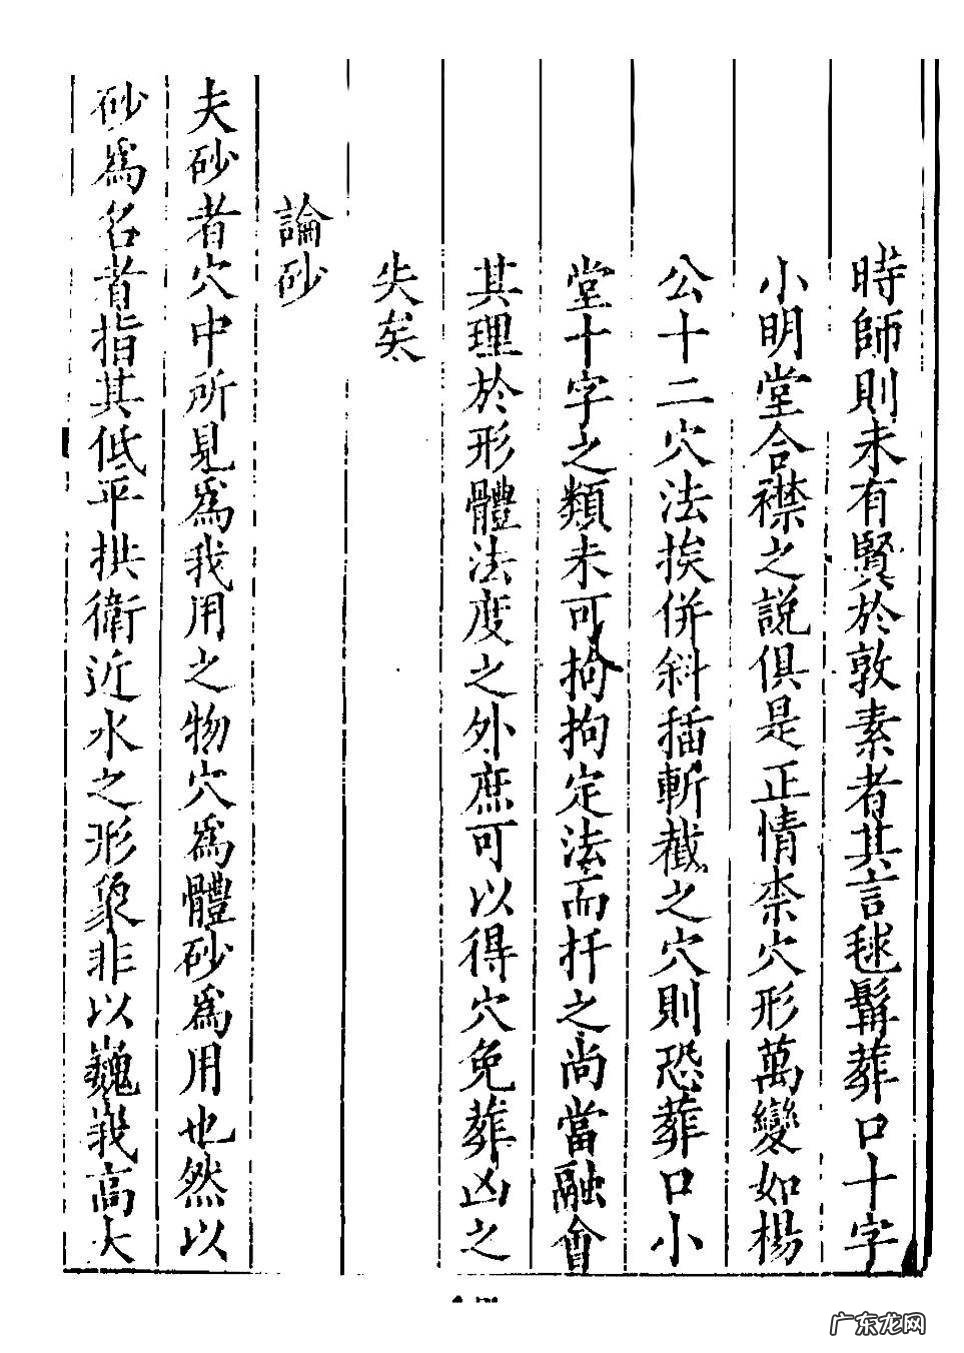 時師則未有賢於敦素者其言毬髯葬口十字
小明堂合襟之説俱是正情柰穴形萬變如楊
公十二穴法挨倂斜插斬截之穴則恐葬口小
堂十字之類未可拘拘定法而扦之尚當融會
其理於形體法度之外庶可以得穴免葬凶之
失矣
論砂
夫砂者穴中所見爲我用之物穴爲體砂爲用也然以
砂爲名者指其低平拱衛近水之形象非以巍峩高大
广东龙网